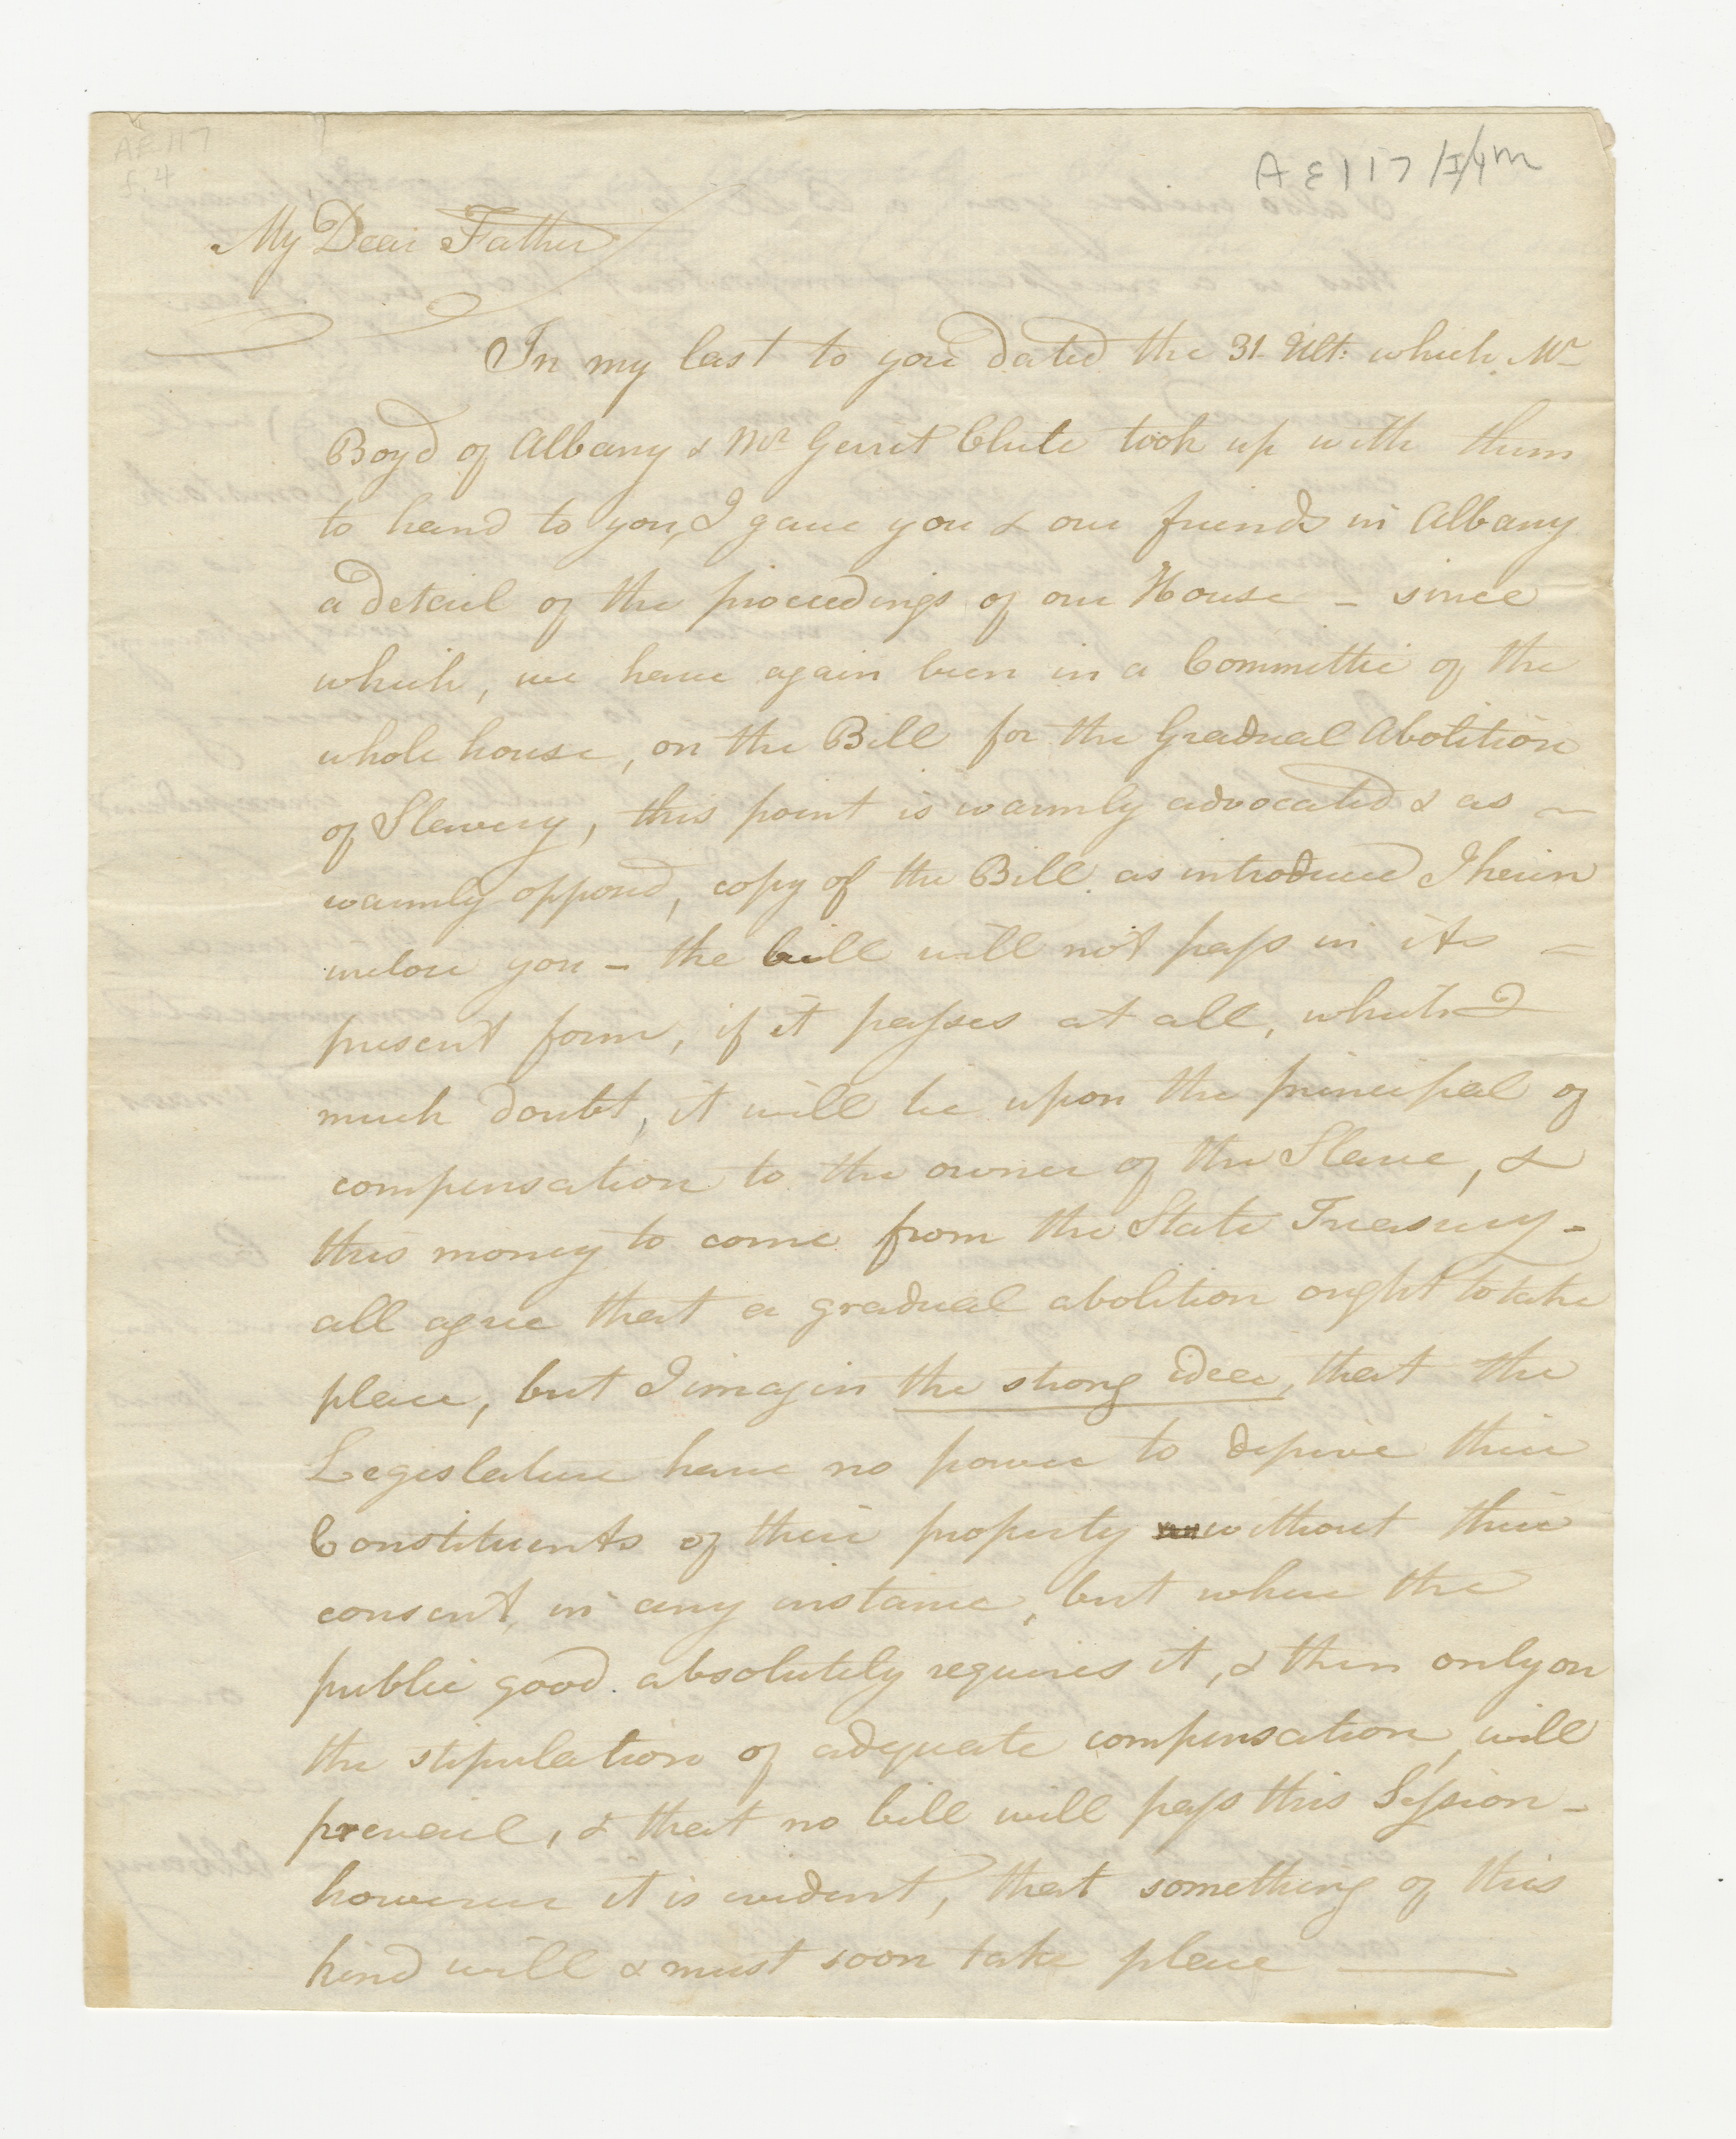 AE117
f. 4
AE117/I/4m
My Dear Father
In my last to you dated the 31. Ult: which Mr
Boyd of Albany & Mr Gerrit Clute took up with them
to hand to you, I gave you & our friends in Albany
a detail of the proceedings of our House – since
which, we have again been in a Committee of the
whole house, on the Bill for the Gradual Abolition
of Slavery, this point is warmly advocated & as ~
warmly opposed, copy of the Bill as introduced I herein
inclose you – the bill will not pass in its –
present form, if it passes at all, which I
much doubt, it will be upon the principal of
compensation to the owner of the Slave, &
this money to come from the State Treasury –
all agree that a gradual abolition ought to take
place, but I imagin the strong idea, that the
Legislature have no power to deprive their
Constituents of their property without their
consent, in any instance, but where the
public good absolutely requires it, & then only on
the stipulation of adequate compensation, will
prevail, & that no bill will pass this Session –
however it is evident, that something of this
kind will & must soon take place —